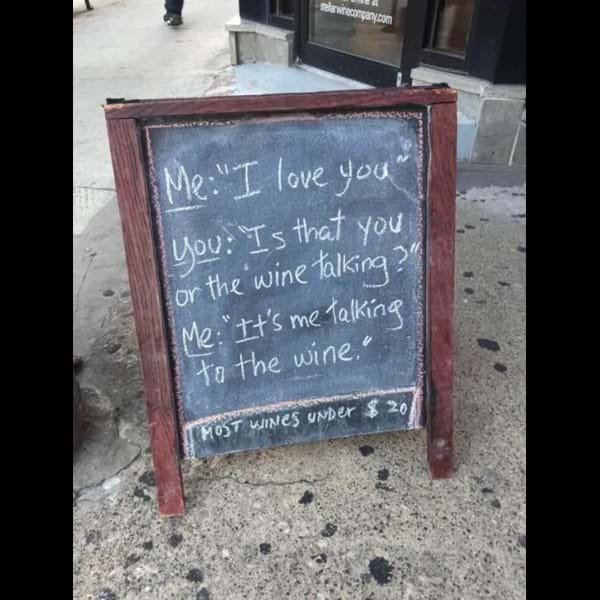 stellarwinecompany.com
Me: "I love you"
you: "Is that you
or the wine talking?"
Me: "It's me talking
to the wine."
MOST WINES UNDER $20